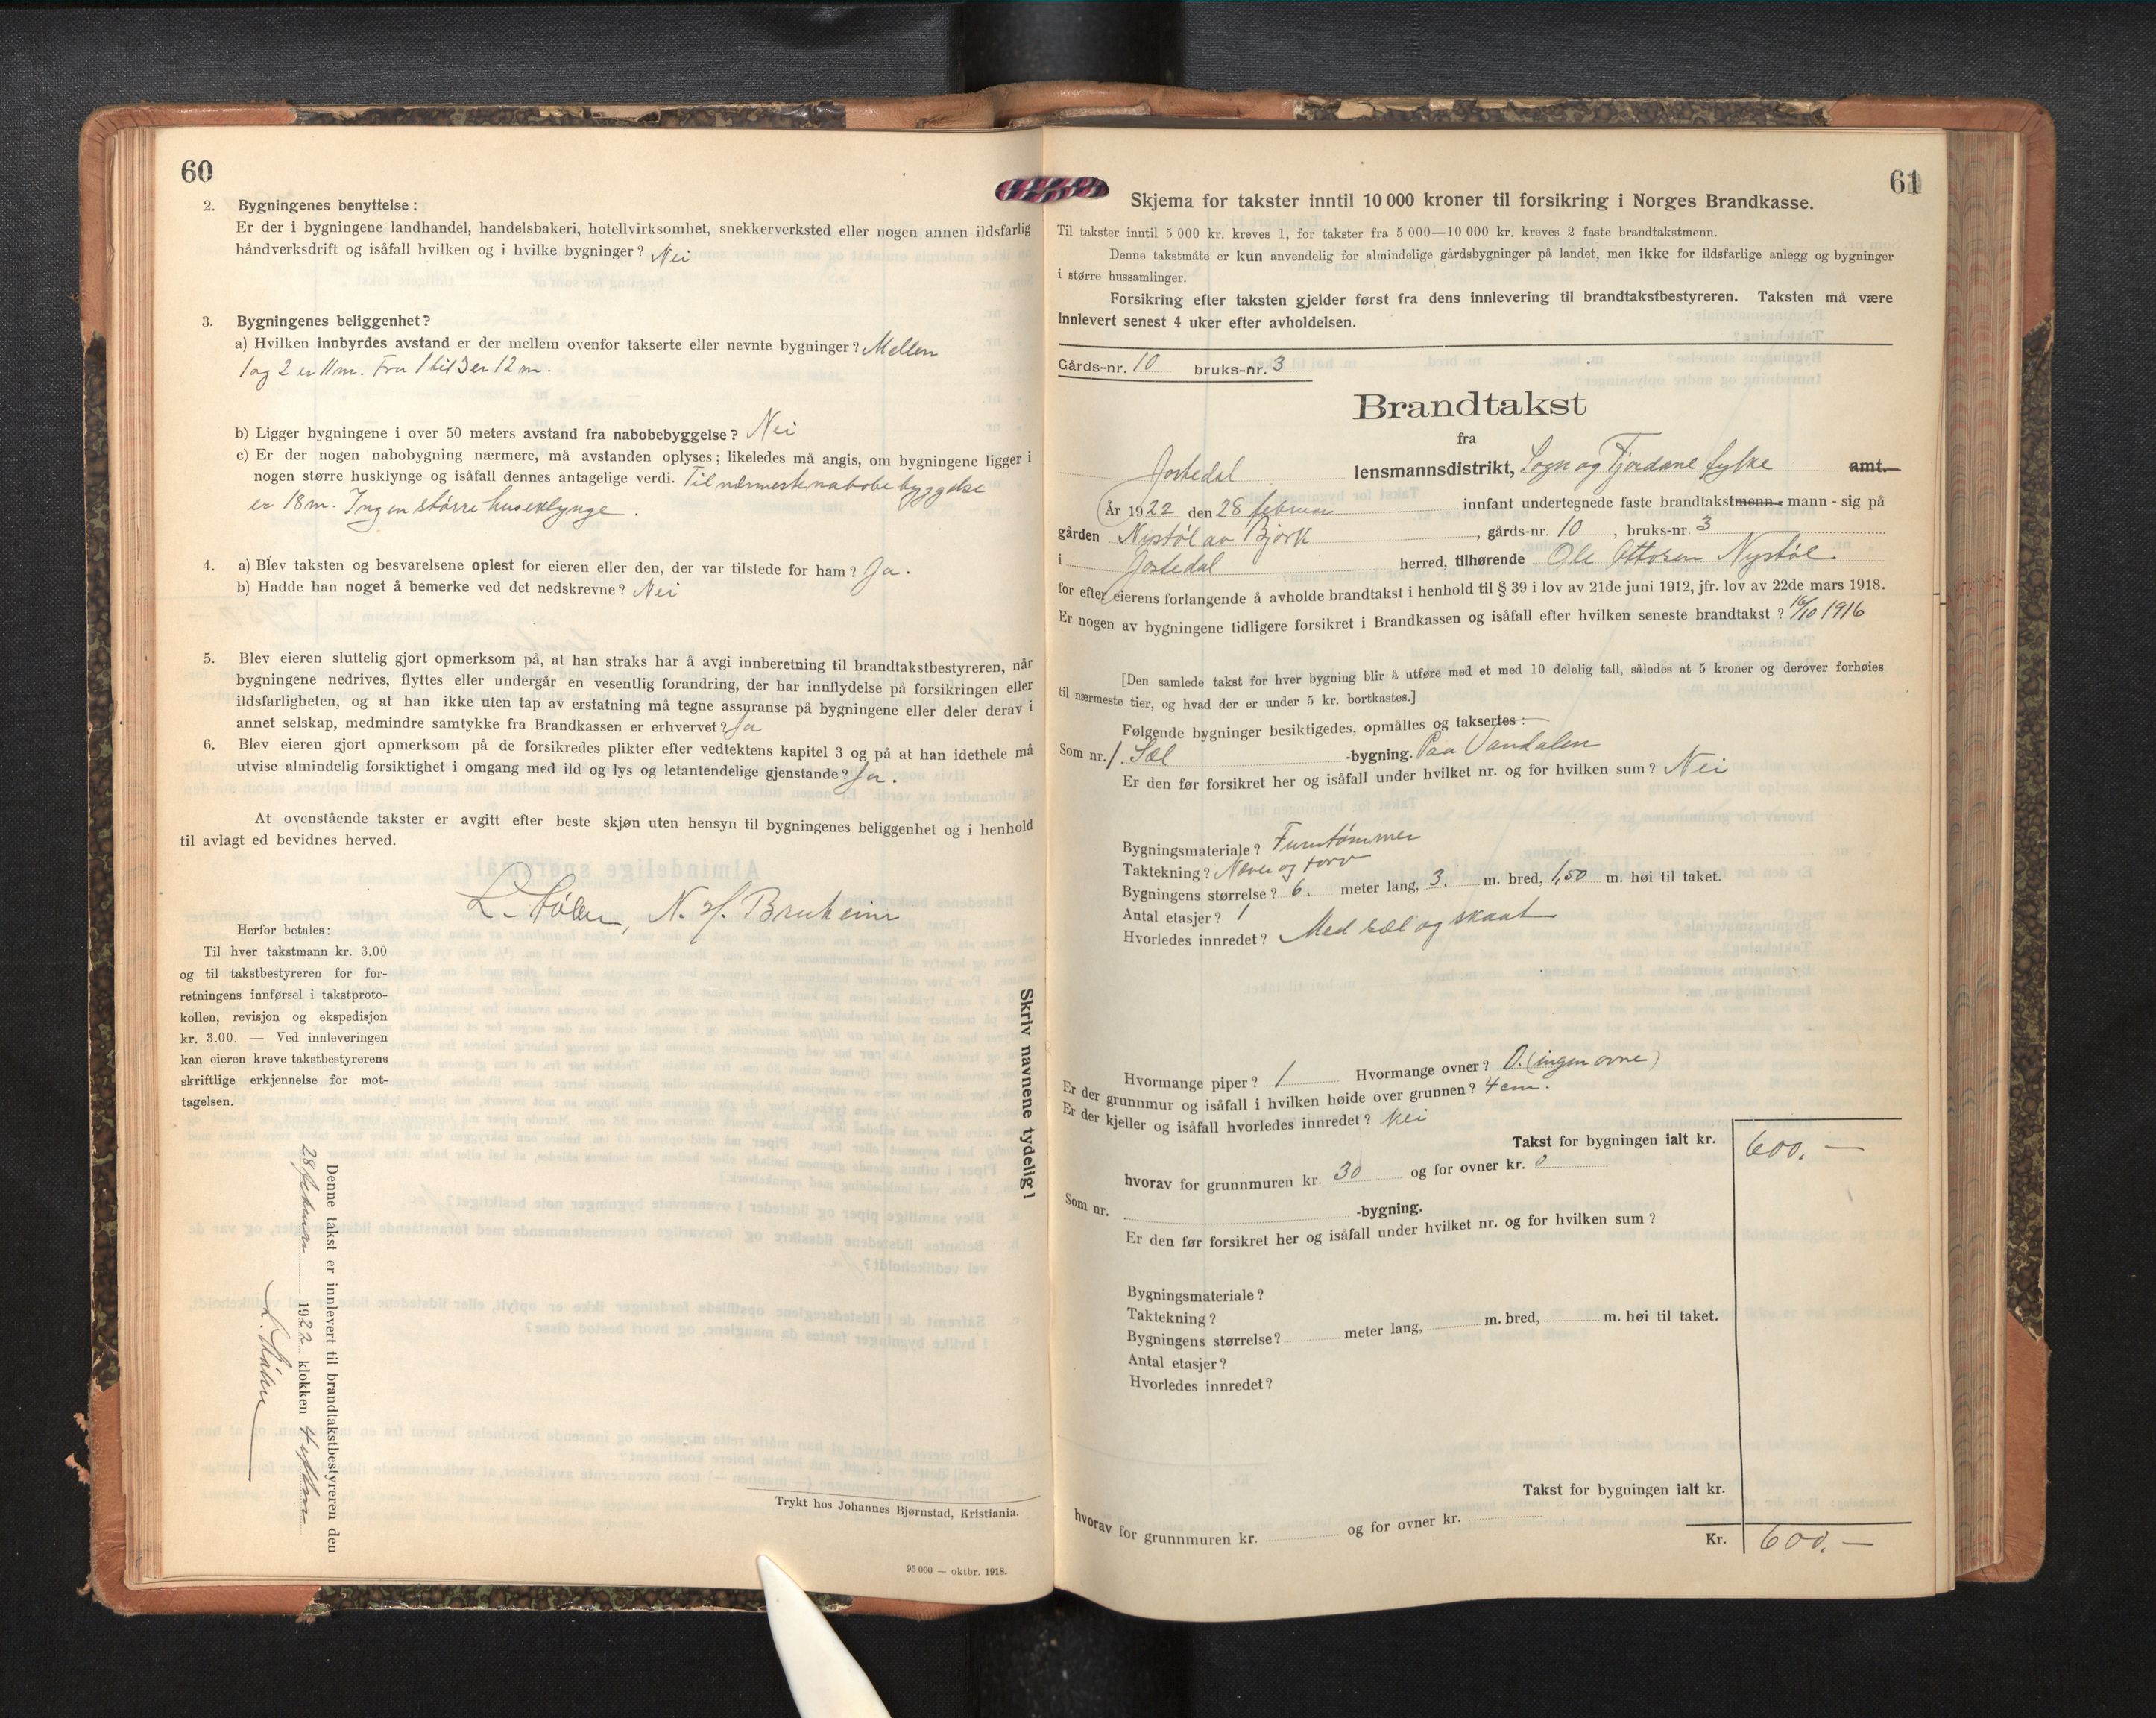 60
2. Bygningenes benyttelse:
Er der i bygningene landhandel, handelsbakeri, hotellvirksomhet, snekkerverksted eller nogen annen ildsfarlig
håndverksdrift og isåfall hvilken og i hvilke bygninger? Nei
3. Bygningenes beliggenhet?
a) Hvilken innbyrdes avstand er der mellem ovenfor takserte eller nevnte bygninger? Mellem
1 og 2 er 11 m. Fra 1 til 3 er 12 m.
b) Ligger bygningene i over 50 meters avstand fra nabobebyggelse? Nei
c) Er der nogen nabobygning nærmere, må avstanden oplyses; likeledes må angis, om bygningene ligger i
nogen større husklynge og isåfall dennes antagelige verdi. Til nærmeste nabobebyggelse
er 18 m. Ingen större huseklynge.
4. a) Blev taksten og besvarelsene oplest for eieren eller den, der var tilstede for ham? Ja.
b) Hadde han noget å bemerke ved det nedskrevne? Nei
5. Blev eieren sluttelig gjort opmerksom på, at han straks har å avgi innberetning til brandtakstbestyreren, når
bygningene nedrives, flyttes eller undergår en vesentlig forandring, der har innflydelse på forsikringen eller
ildsfarligheten, og at han ikke uten tap av erstatning må tegne assuranse på bygningene eller deler derav i
annet selskap, medmindre samtykke fra Brandkassen er erhvervet? Ja
6. Blev eieren gjort opmerksom på de forsikredes plikter efter vedtektens kapitel 3 og på at han idethele må
utvise almindelig forsiktighet i omgang med ild og lys og letantendelige gjenstande? Ja.
At ovenstående takster er avgitt efter beste skjøn uten hensyn til bygningenes beliggenhet og i henhold
til avlagt ed bevidnes herved.
N. H. Bruheim
Herfor betales:
Til hver takstmann kr. 3.00
og til takstbestyreren for for-
retningens innførsel i takstproto-
kollen, revisjon og ekspedisjon
kr. 3.00. — Ved innleveringen
kan eieren kreve takstbestyrerens
skriftlige erkjennelse for mot-
tagelsen.
Skriv navnene tydelig!
Denne takst er innlevert til brandtakstbestyreren den
28 februar 1922 klokken 4
Trykt hos Johannes Bjørnstad, Kristiania.
95 000 — oktbr. 1918.
61
Skjema for takster inntil 10 000 kroner til forsikring i Norges Brandkasse.
Til takster inntil 5 000 kr. kreves 1, for takster fra 5 000—10 000 kr. kreves 2 faste brandtakstmenn.
Denne takstmåte er kun anvendelig for almindelige gårdsbygninger på landet, men ikke for ildsfarlige anlegg og bygninger
i større hussamlinger.
Forsikring efter taksten gjelder først fra dens innlevering til brandtakstbestyreren. Taksten må være
innlevert senest 4 uker efter avholdelsen.
Gårds-nr. 10 bruks-nr. 3
Brandtakst
fra
Jostedal lensmannsdistrikt, Sogn og Fjordane fylke amt.
År 1922 den 28 februar innfant undertegnede faste brandtakstmenn - mann - sig på
gården Nystöl av Bjørk, gårds-nr. 10, bruks-nr. 3
i Jostedal herred, tilhørende Ole Ottosen Nystöl.
for efter eierens forlangende å avholde brandtakst i henhold til § 39 i lov av 21de juni 1912, jfr. lov av 22de mars 1918.
Er nogen av bygningene tidligere forsikret i Brandkassen og isåfall efter hvilken seneste brandtakst? 16/10 1916
[Den samlede takst for hver bygning blir å utføre med et med 10 delelig tall, således at 5 kroner og derover forhøies
til nærmeste tier, og hvad der er under 5 kr. bortkastes.]
Følgende bygninger besiktigedes, opmåltes og taksertes:
Som nr. 1. Sæl -bygning. Paa Vandalen
Er den før forsikret her og isåfall under hvilket nr. og for hvilken sum? Nei
Bygningsmateriale? Furutömmer
Taktekning? Næver og torv
Bygningens størrelse? 6. meter lang, 3. m. bred, 1,50 m. høi til taket.
Antal etasjer? 1
Hvorledes innredet? Med sæl og skaat
Hvormange piper? 1 Hvormange ovner? 0. (ingen ovne)
Er der grunnmur og isåfall i hvilken høide over grunnen? 4 cm.
Er der kjeller og isåfall hvorledes innredet? Nei
Takst for bygningen ialt kr. 600. —
hvorav for grunnmuren kr. 30 og for ovner kr. 0
Som nr. -bygning.
Er den før forsikret her og isåfall under hvilket nr. og for hvilken sum?
Bygningsmateriale?
Taktekning?
Bygningens størrelse? meter lang, m. bred, m. høi til taket.
Antal etasjer?
Hvorledes innredet?
Takst for bygningen ialt kr.
hvorav for grunnmuren kr. og for ovner kr.
Kr. 600. —